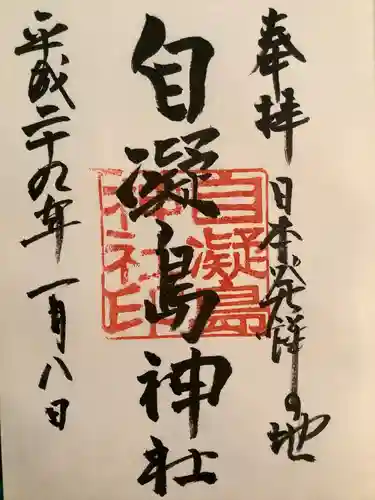 奉拝
日本発祥の地
自凝島神社
自凝島
神社印
平成二十九年一月八日